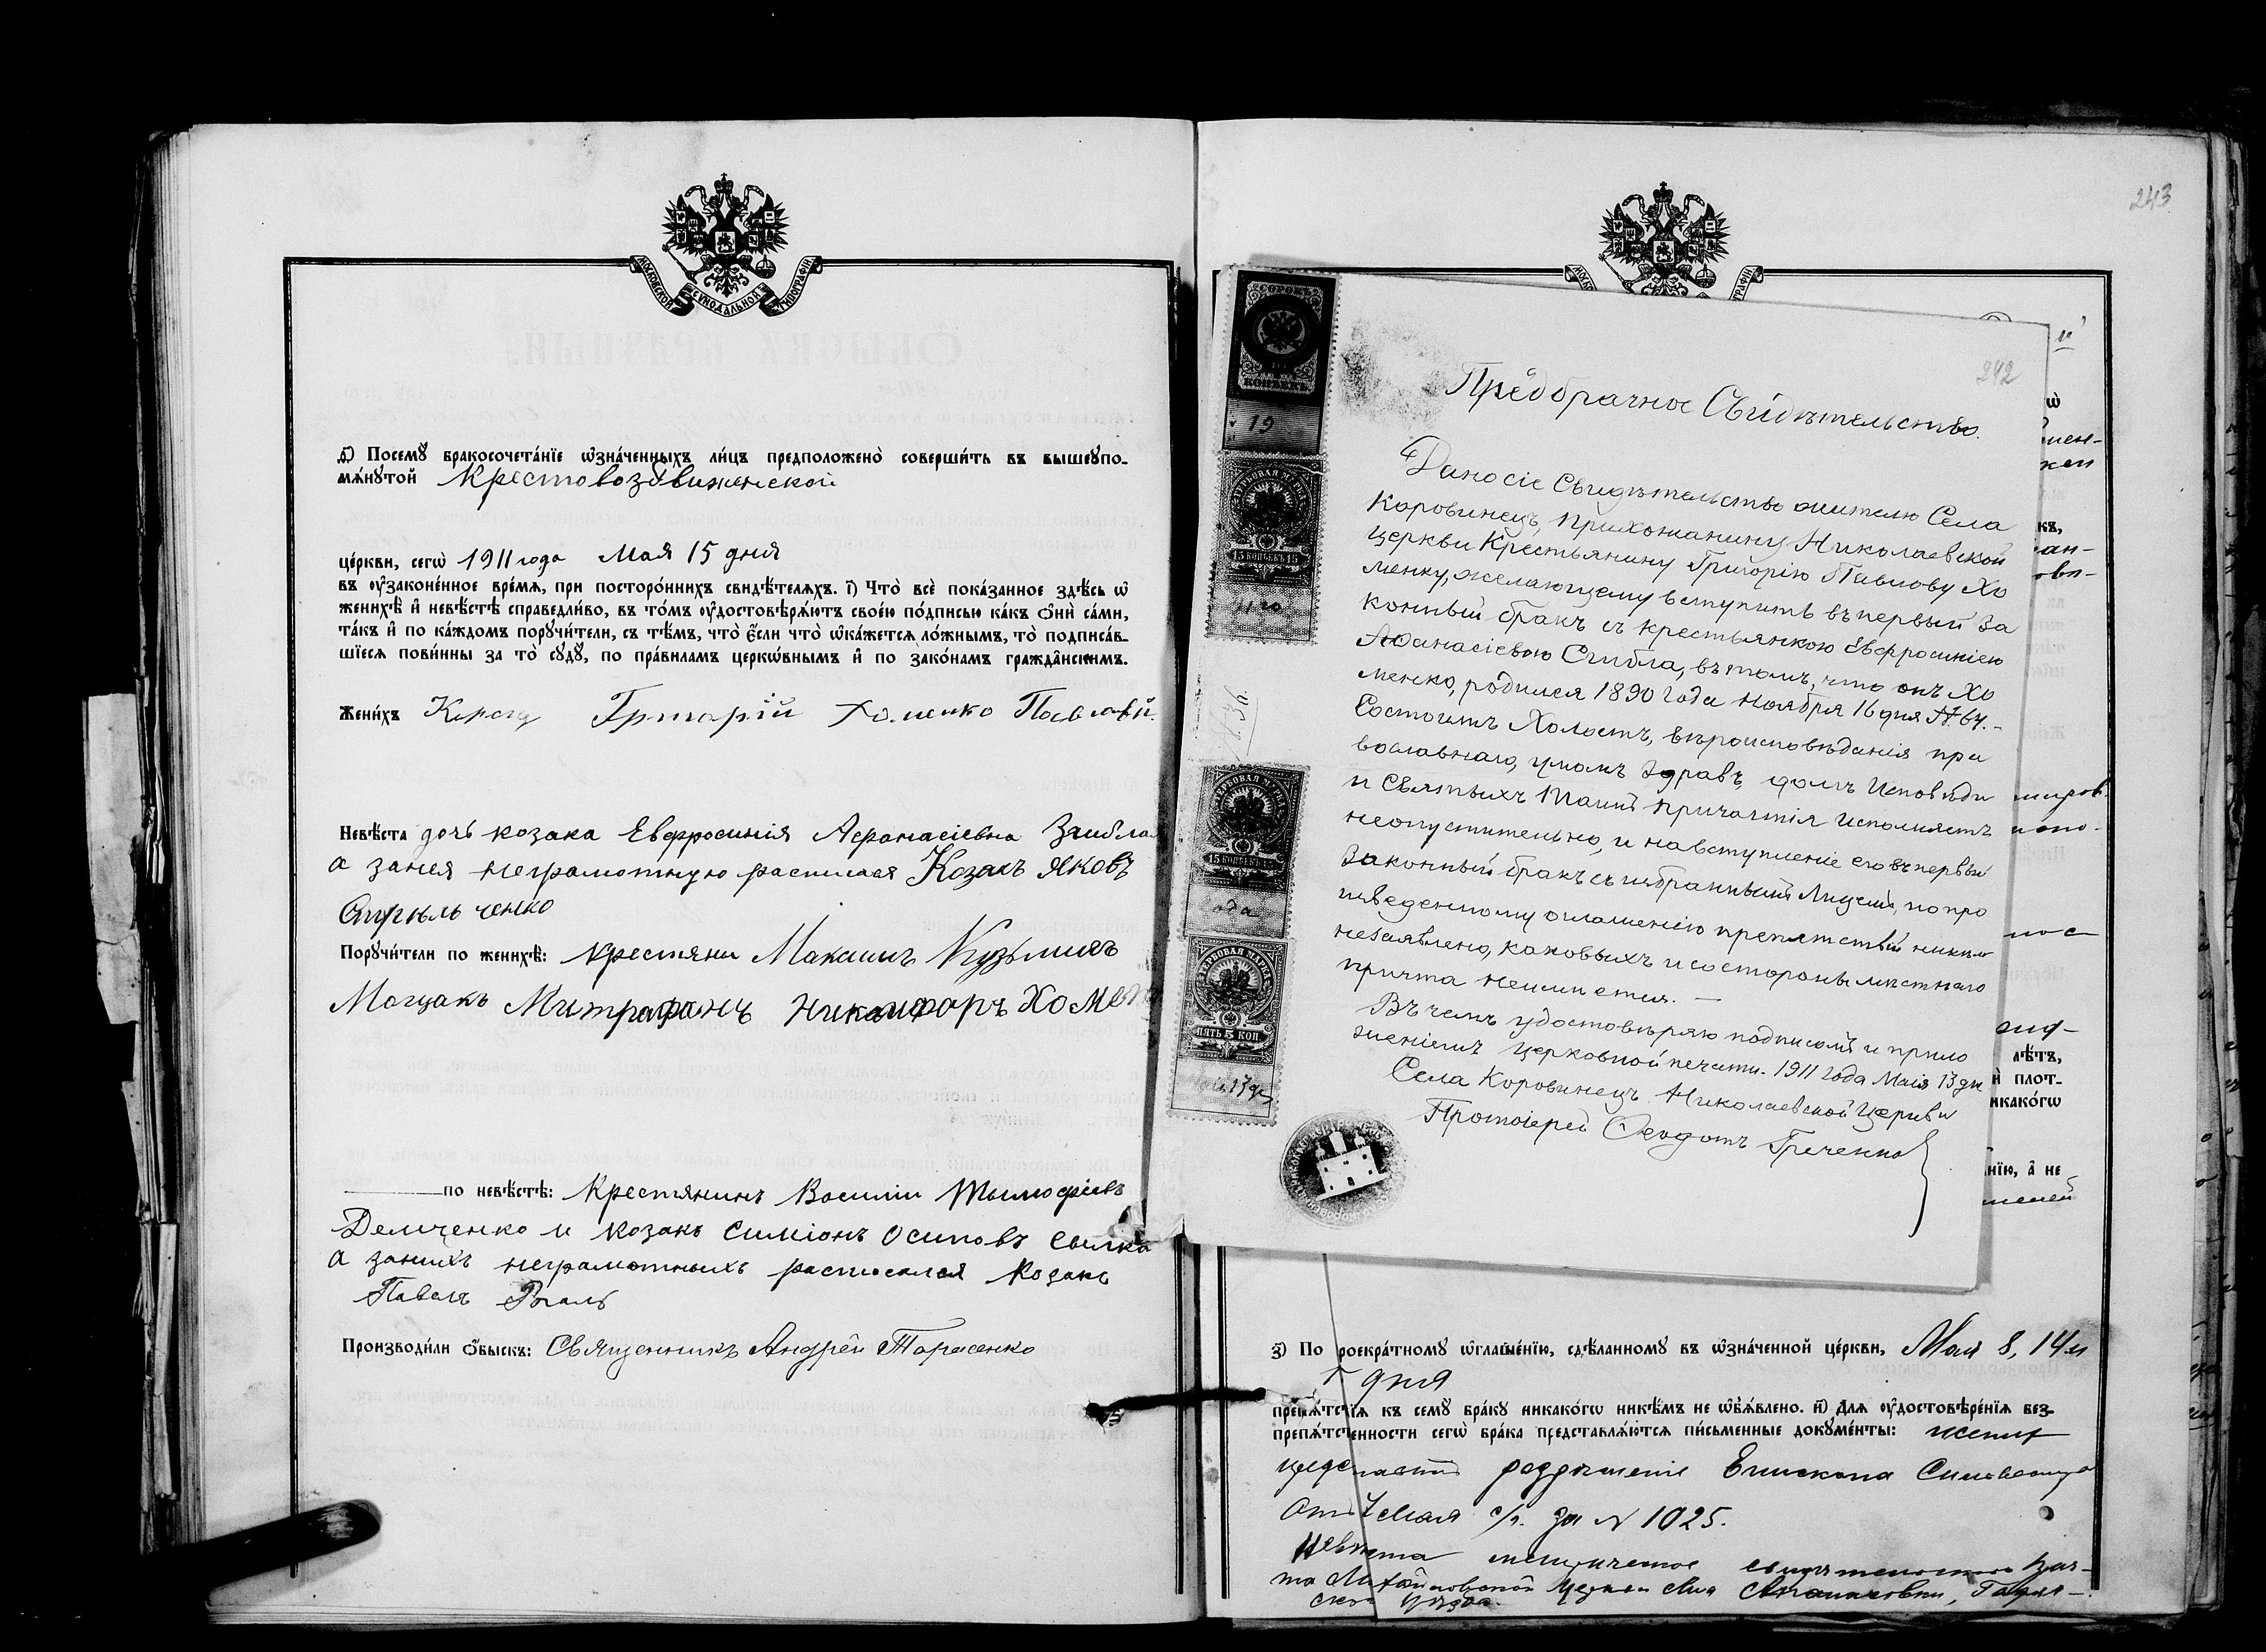 МОСКОВСКОЙ СѴНОДАЛЬНОЙ ТИПОГРАФІИ
Посемꙋ бракосочета́нїе ѡ҆зна́ченныхъ ли́цъ предположено̀ соверши́ть въ вышеꙋпо-
мѧ́нꙋтой Крестовоздвиженской
це́ркви, сегѡ̀ 1911 года Мая 15 дня
въ ᲂу҆законе́нное вре́мѧ, при посторо́ннихъ свидѣ́телѧхъ. і҃) Что̀ всѐ пока́занное здѣ́сь ѡ҆
женихѣ̀ и҆ невѣ́стѣ справедли́во, въ то́мъ ᲂу҆достовѣрѧ́ютъ свое́ю по́дписью ка́къ ѻ҆нѝ са́ми,
та́къ и҆ по ка́ждомъ порꙋчи́тели, съ тѣ́мъ, что̀ є҆́сли что̀ ѡ҆ка́жетсѧ ло́жнымъ, то̀ подписа́в-
шїесѧ пови́нны за то̀ сꙋдꙋ̀, по пра́виламъ церкѡ́внымъ и҆ по зако́намъ гражда̂нскимъ.
Жени́хъ Григорій Хоменко Павловъ
Невѣ́ста дочь козака Евфросинія Афанасіевна
а за нея неграмотную расписался Козакъ Яковъ
Порꙋчи́тели по женихѣ̀: Крестяни Максимъ Кузьминъ
Митрофанъ Никифоръ Хомен
по невѣ́стѣ: Крестянинъ Василіи Тымофіевъ
Демченко и козакъ Симіонъ Осиповъ
а заныхъ неграмотныхъ расписался козакъ
Павелъ
Производи́ли ѻ҆́быскъ: Священникъ Андрей Тарасенко
243
МОСКО ГРАФІИ
242
СОРОКЪ
КОПѢЕКЪ
19
ГЕРБОВАЯ МАРКА
15 КОПѢЕКЪ 15
11 го
ГЕРБОВАЯ МАРКА
15 КОПѢЕКЪ 15
ода
ГЕРБОВАЯ МАРКА
ПЯТЬ 5 КОП
13 дн
Предбрачное Свидѣтельство.
Дано сіе Свидѣтельство жителю Села
Коровинецъ, прихожанину Николаевской
церкви Крестьянину Григорію Павлову Хо
менку, желающему вступить въ первый За
конный бракъ съ крестьянкою Евфросиніею
Афанасіевою, въ томъ, что онъ Хо
менко, родился 1890 года Ноября 16 дня № 64. –
Состоитъ Холостъ, вѣроисповѣданія пра
вославнаго, умомъ здравъ, долгъ Исповѣди
и Святыхъ Таинъ Причастія исполняетъ
неопустительно, и на вступленіе его въ первый
Законный бракъ съ избраннымъ Лицемъ, по про
изведенному оглашенію препятствій никѣмъ
незаявлено, каковыхъ и состороны мѣстнаго
причта неимѣется. —
Въ чемъ удостовѣряю подписомъ и прило
женіемъ церковной печати. 1911 года Маія 13 дн.
Села Коровинецъ Николаевской Церкви
Протоіерей Ѳеодотъ Греченко
лѣ́тъ,
и҆ плот-
никако́гѡ
нїю, а҆ не
з҃) По троекра́тномꙋ ѡ҆глаше́нїю, сдѣ́ланномꙋ въ ѡ҆зна́ченной це́ркви, Мая 8, 14 и
дня
препѧ́тствїѧ къ семꙋ̀ бра́кꙋ никако́гѡ никѣ́мъ не ѡ҆б̾ѧ́влено. и҃) Длѧ ᲂу҆достовѣре́нїѧ без-
препѧ́тственности сегѡ̀ бра́ка представлѧ́ютсѧ пи́сьменные докꙋме́нты:
разрѣшеніе Епископа Сильвестра
отъ 7 Мая с/г. за N 1025.
Невѣста метрическое свидѣтельство
Михайловской Церкви